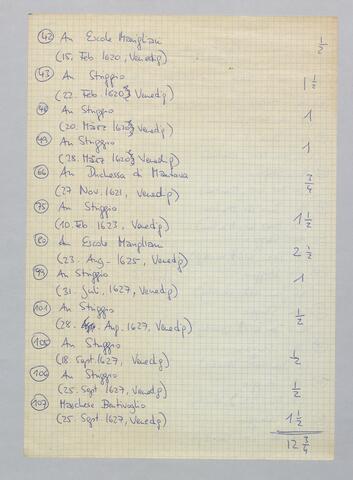 42 An Ercole Marigliani 1/2
(15. Feb 1620, Venedig)
43 An Striggio 1 1/2
(22. Feb. 1620, Venedig)
An Striggio 1
(20. März 1620, Venedig)
49 An Striggio 1
(28. März 1620, Venedig)
66 An Duchessa di Mantova 3/4
(27 Nov. 1621, Venedig)
75 An Striggio 1 1/2
(10. Feb 1623, Venedig)
80 An Ercole Marigliani 2 1/2
(23. Aug. 1625, Venedig)
99 An Striggio 1
(31 Juli, 1627, Venedig)
101 An Striggio 1/2
(28. Aug. 1627, Venedig)
105 An Striggio 1/2
(18 Sept. 1627, Venedig)
106 An Striggio 1/2
(25. Sept 1627, Venedig)
107 Marchese Bentivoglio 1 1/2
(25. Sept 1627, Venedig)
12 3/4